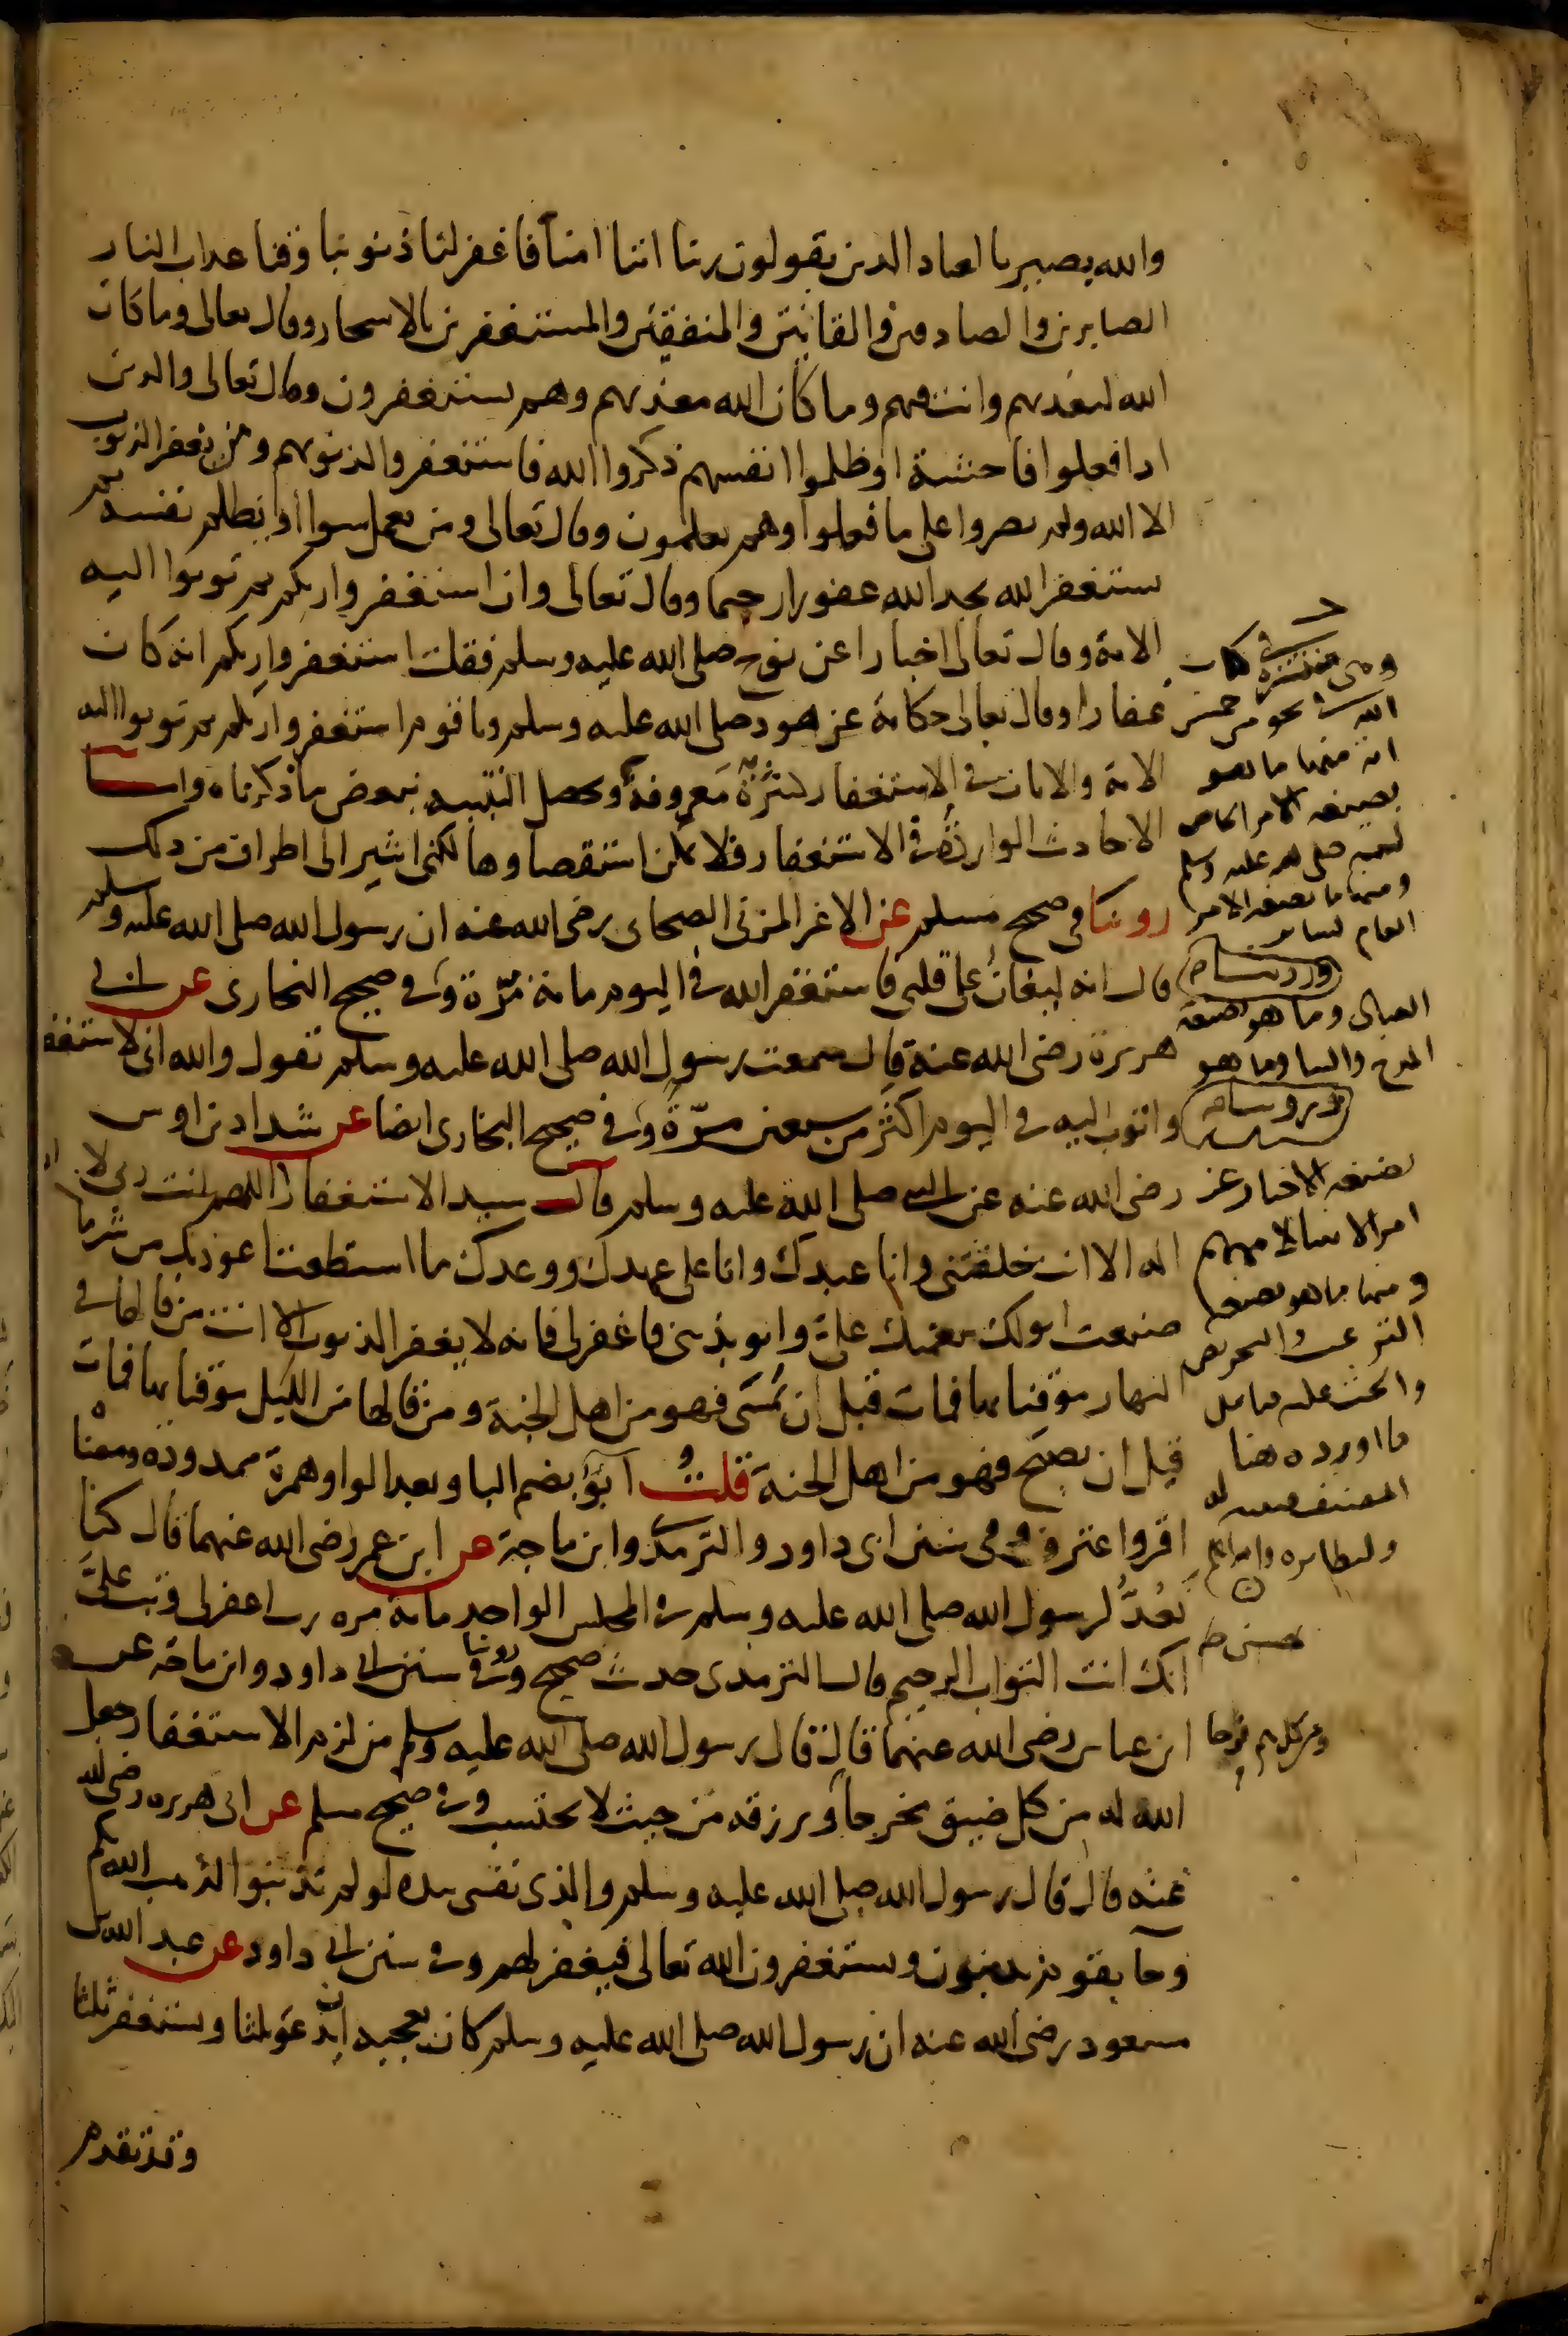 والله بصير بالعباد الذين يقولون ربنا اننا امنا فاغفر لنا ذنوبنا وقنا عذاب النار
الصابرين والصادقين والقانتين والمنفقين والمستغفرين بالاسحار وقال تعالى وما كان
الله ليعذبهم وانت فيهم وما كان الله معذبهم وهم يستغفرون وقال تعالى والذين
اذا فعلوا فاحشة او ظلموا انفسهم ذكروا الله فاستغفروا لذنوبهم ومن يغفر الذنوب
الا الله ولم يصروا على ما فعلوا وهم يعلمون وقال تعالى ومن يعمل سوا او يظلم نفسه ثم
يستغفر الله يجد الله غفورا رحيما وقال تعالى وان استغفروا ربكم ثم توبوا اليه
الاية وقال تعالى اخبارا عن نوح صلى الله عليه وسلم فقلت استغفروا ربكم انه كان
غفارا وقال تعالى حكاية عن هود صلى الله عليه وسلم ويا قوم استغفروا ربكم ثم توبوا اليه
الاية والايات في الاستغفار كثيرة معروفة ويحصل التنبيه ببعض ما ذكرناه واما
الاحاديث الواردة في الاستغفار فلا يمكن استقصاوها لكنى اشير الى اطراف من ذلك
روينا في صحيح مسلم عن الاغر المزنى الصحابى رضى الله عنه ان رسول الله صلى الله عليه وسلم
قال انه ليغان على قلبى فاستغفر الله في اليوم مائة مرة وفي صحيح البخارى عن ابى
هريرة رضى الله عنه قال سمعت رسول الله صلى الله عليه وسلم يقول والله انى لاستغفر
واتوب اليه في اليوم اكثر من سبعين مرة وفي صحيح البخارى ايضا عن شداد بن اوس
رضى الله عنه عن النبي صلى الله عليه وسلم قال سيد الاستغفار اللهم انت ربى لا
اله الا انت خلقتنى وانا عبدك وانا على عهدك ووعدك ما استطعت اعوذ بك من شر ما
صنعت ابو لك بنعمتك على وابو بذنبى فاغفر لى فانه لا يغفر الذنوب الا انت من قالها في
النهار موقنا بها فمات قبل ان يمسى فهو من اهل الجنة ومن قالها من الليل موقنا بها فمات
قبل ان يصبح فهو من اهل الجنة قلت ابو بضم البا وبعد الواو همزة ممدودة ومعنا
اقروا عترف وفى سنن ابى داود والترمذى وابن ماجة عن ابن عمر رضى الله عنهما قال كنا
نعد لرسول الله صلى الله عليه وسلم في المجلس الواحد مائة مرة رب اغفر لى وتب على
انك انت التواب الرحيم قال الترمذى حديث صحيح وروينا في سنن ابى داود وابن ماجه عن
ابن عباس رضى الله عنهما قال قال رسول الله صلى الله عليه وسلم من لزم الاستغفار جعل
الله له من كل ضيق مخرجا ويرزقه من حيث لا يحتسب وفي صحيح مسلم عن ابى هريرة رضى الله
عنه قال قال رسول الله صلى الله عليه وسلم والذى نفسى بيده لو لم تذنبوا لذهب الله بكم
وجا بقوم يذنبون ويستغفرون الله تعالى فيغفر لهم وفي سنن ابى داود عن عبد الله بن
مسعود رضى الله عنه ان رسول الله صلى الله عليه وسلم كان يعجبه ان يدعو ثلثا ويستغفر ثلثا
وقد تقدم
وهى منتشرة في كتاب
الله نحو من خمس
اية منها ما هو
بصيغة الامر الخاص
لنبيه صلى الله عليه وسلم
ومنها ما بصيغة الامر
العام لساير
وما هو بصيغة
المدح والثنا وما هو
بصيغة الاخبار عن
امر الانبيا لاممهم
ومنها ما هو بصيغة
الترغيب والتحريض
والحث عليه
ما اورده هنا
المصنف
ومن كل هم فرجا